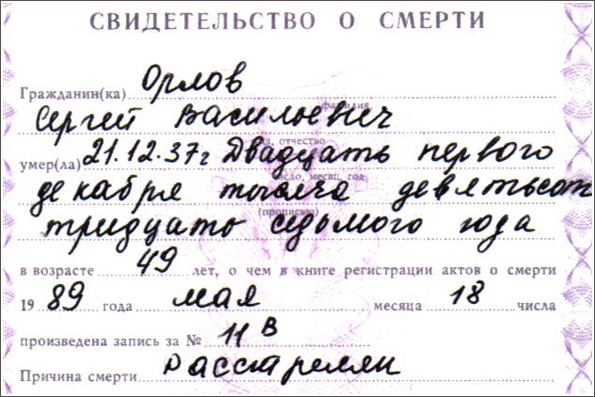 СВИДЕТЕЛЬСТВО О СМЕРТИ
Гражданин(ка) Орлов
фамилия
Сергей Васильевич
имя, отчество
умер(ла) 21.12.37г Двадцать первого
число, месяц, год
декабря тысяча девятьсот
(прописью)
тридцать седьмого года
в возрасте 49 лет, о чем в книге регистрации актов о смерти
19 89 года мая месяца 18 числа
произведена запись за № 11 В
Причина смерти Расстрелян